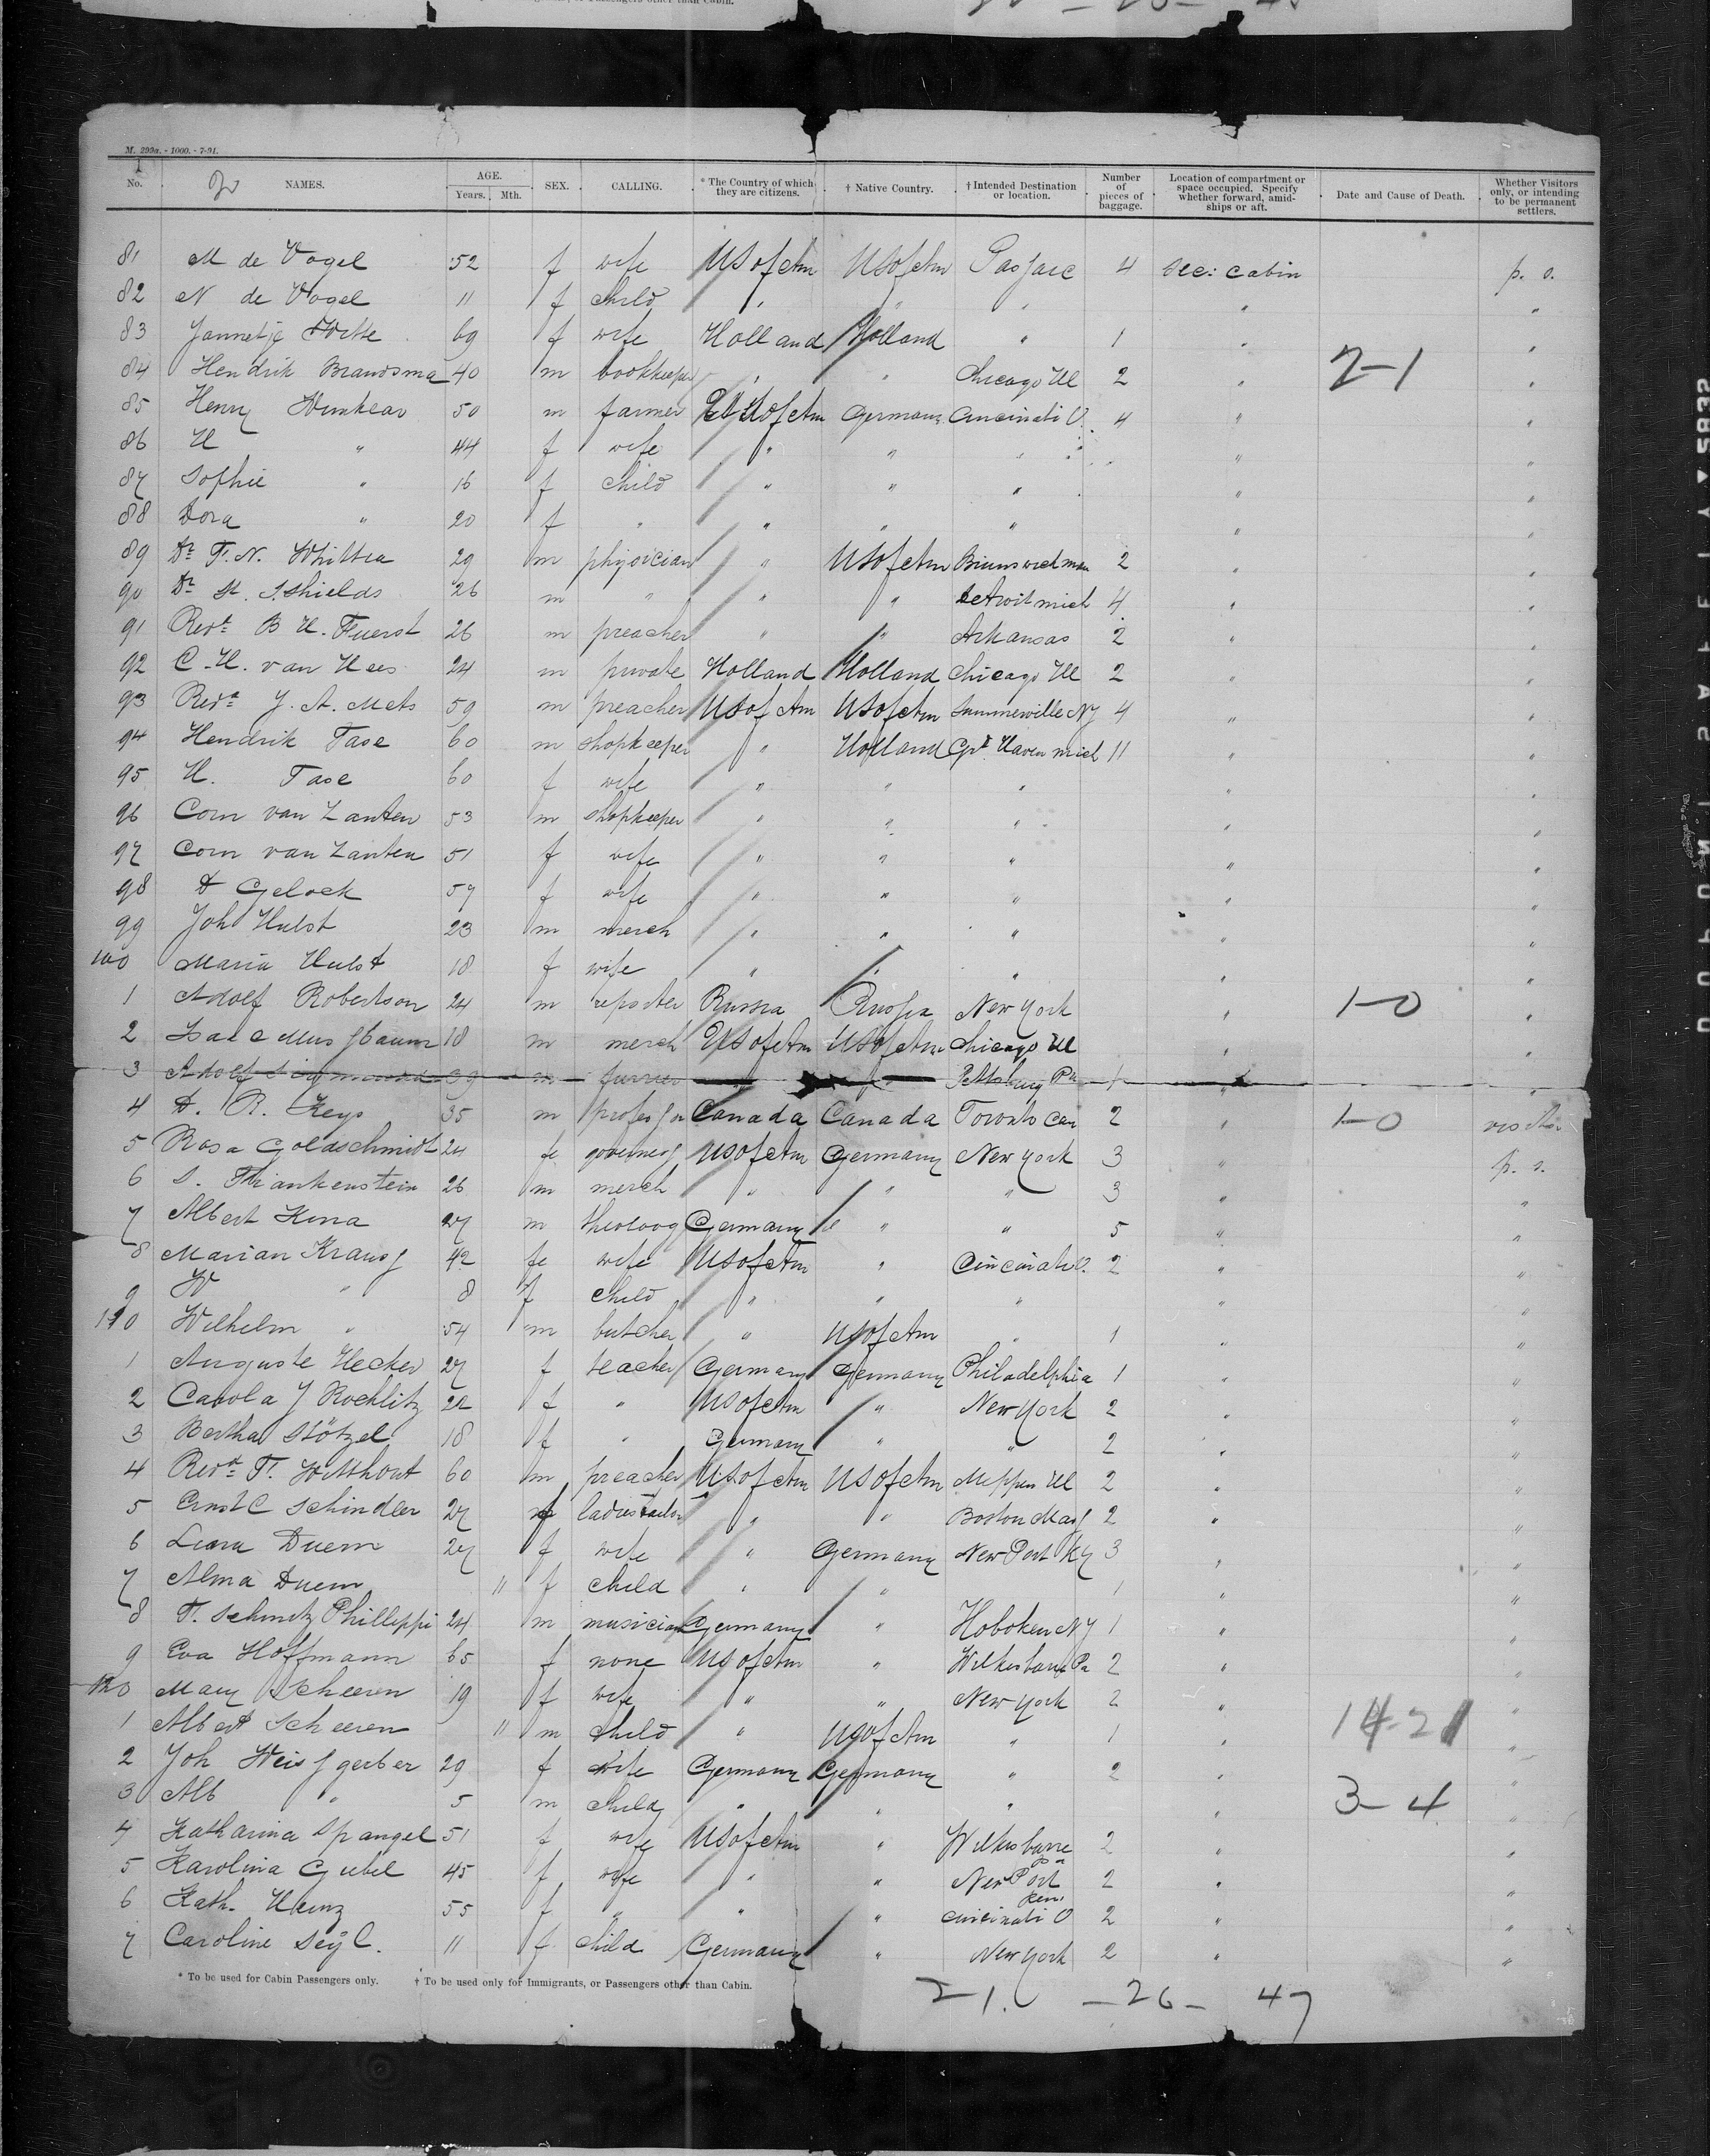 or Passengers other than Cabin.
M. 299a. - 1000. - 7-91.
No. NAMES. AGE. Years. Mth. SEX. CALLING. * The Country of which they are citizens. † Native Country. † Intended Destination or location. Number of pieces of baggage. Location of compartment or space occupied. Specify whether forward, amidships or aft. Date and Cause of Death. Whether Visitors only, or intending to be permanent settlers.
81 M de Vogel 52 f wife US of Am US of Am Passaic 4 sec: cabin p. s.
82 N de Vogel 11 f child " " " " "
83 Jannetje Witte 69 f wife Holland Holland " 1 " "
84 Hendrik Brandsma 40 m bookkeeper " " Chicago Ill 2 " 2-1 "
85 Henry 50 m farmer US of Am Germany Cincinati O. 4 " "
86 H " 44 f wife " " " " "
87 Sophie " 16 f child " " " " "
88 Dora " 20 f " " " " " "
89 Dr F. N. Whittier 29 m physician " US of Am Brunswick 2 " "
90 Dr Shields 26 m " " " Detroit mich 4 " "
91 Revd B H. Fuerst 26 m preacher " " Arkansas 2 " "
92 C. H. van Hees 24 m private Holland Holland Chicago Ill 2 " "
93 Revd J. A. Mets 59 m preacher US of Am US of Am NJ 4 " "
94 Hendrik Tase 60 m shopkeeper " Holland Gr Haven mich 11 " "
95 H. Tase 60 f wife " " " " "
96 Corn van Zanten 53 m shopkeeper " " " " "
97 Corn van Zanten 51 f wife " " " " "
98 D Gelock 57 f wife " " " " "
99 Joh Hulst 23 m merch " " " " "
100 Maria Hulst 18 f wife " " " " "
1 Adolf Robertson 24 m reporter Russia Russia New York " 1-0 "
2 Isac Mussbaum 18 m merch US of Am US of Am Chicago Ill " "
3 Adolf 39 m furrier " Pittsburg Pa 1 " "
4 D. R. Keys 35 m professor Canada Canada Toronto Can 2 " 1-0 visitor
5 Rosa Goldschmidt 24 fe governess US of Am Germany New York 3 " p. s.
6 S. Frankenstein 26 m merch " " " 3 " "
7 Albert 27 m theoloog Germany " " 5 " "
8 Marian Krauss 42 fe wife US of Am " Cincinati O. 2 " "
9 W " 8 f child " " " " "
110 Wilhelm " 54 m butcher " US of Am " 1 " "
1 Auguste Hecker 27 f teacher Germany Germany Philadelphia 1 " "
2 Carola J Rochlitz 22 f " US of Am " New York 2 " "
3 Bertha Stötzel 18 f " Germany " " 2 " "
4 Revd F. Witthout 60 m preacher US of Am US of Am Meppen Ill 2 " "
5 Ernst C Schindler 27 m ladies tailor " " Boston Mass 2 " "
6 Duem 27 f wife " Germany New Port Ky 3 " "
7 Alma Duem 11 f child " " 1 " "
8 F. Schmitz Phillippi 24 m musician Germany " Hoboken NJ 1 " "
9 Eva Hoffmann 65 f none US of Am " Wilkesbarre Pa 2 " "
120 Mary Scheeren 19 f wife " " New York 2 " "
1 Albert Scheeren 11 m child " US of Am " 1 " "
2 Joh Weissgerber 29 f wife Germany Germany " 2 " "
3 Alb " 5 m child " " " " 3-4 "
4 Katharina Spangel 51 f wife US of Am " Wilkesbarre Pa 2 " "
5 Karolina Giebel 45 f wife " " New Port Ken. 2 " "
6 Kath. Heinz 55 f " " " Cincinati O 2 " "
7 Caroline Seÿl. 11 f child Germany " New York 2 " "
* To be used for Cabin Passengers only. † To be used only for Immigrants, or Passengers other than Cabin.
21. - 26 - 47